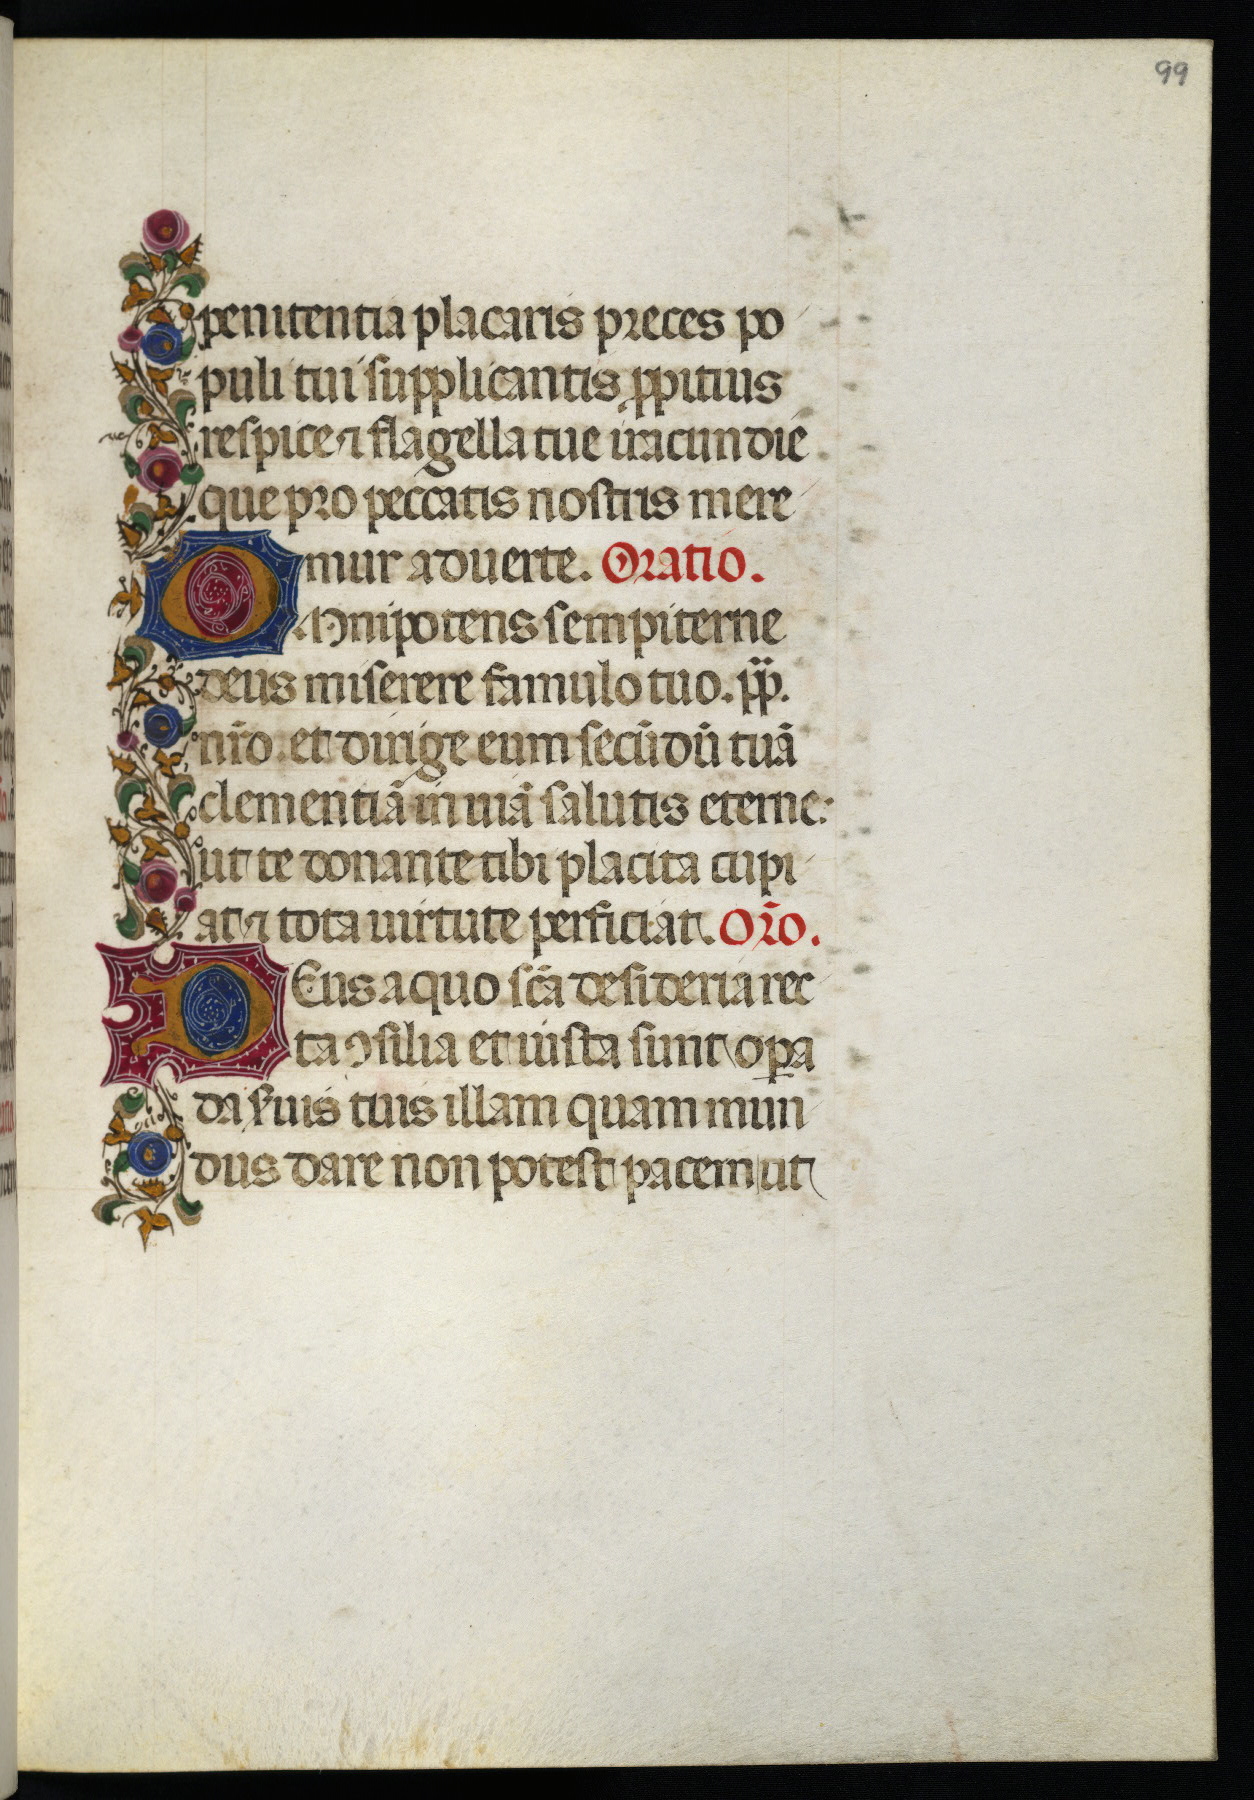 99
penitentia placaris preces po
puli tui supplicantis ꝓpitius
respice ⁊ flagella tue iracundie
que pro peccatis nostris mere
mur aduerte. Oratio.
Omnipotens sempiterne
deus miserere famulo tuo. pp̄.
nr̄o. et dirige eum secūdū tuā
clementiā in uiā salutis eterne:
ut te donante tibi placita cupi
at ⁊ tota uirtute perficiat. Or̄o.
DEus a quo sc̄a desideria rec
ta ꝯsilia et iusta sunt oꝑa
da s̄uis tuis illam quam mun
dus dare non potest pacem ut